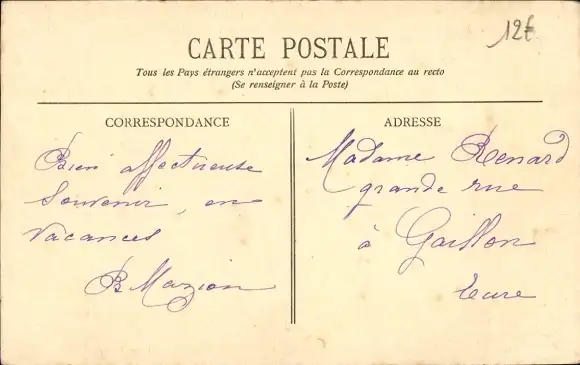 12€
CARTE POSTALE
Tous les Pays étrangers n'acceptent pas la Correspondance au recto
(Se renseigner à la Poste)
CORRESPONDANCE
Bien affectueuse
Souvenir, en
Vacances
B Mazion
ADRESSE
Madame Renard
grande rue
à Gaillon
Eure